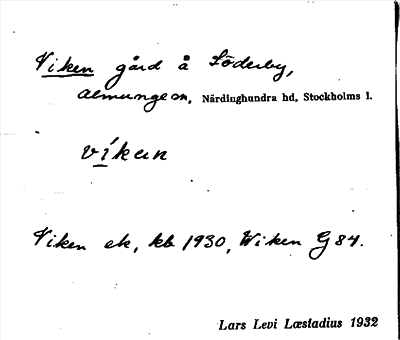 Viken gård å Söderby,
Almunge sn, Närdinghundra hd, Stockholms l.
víkan
Viken ek, kb 1930, Wiken G 84.
Lars Levi Læstadius 1932